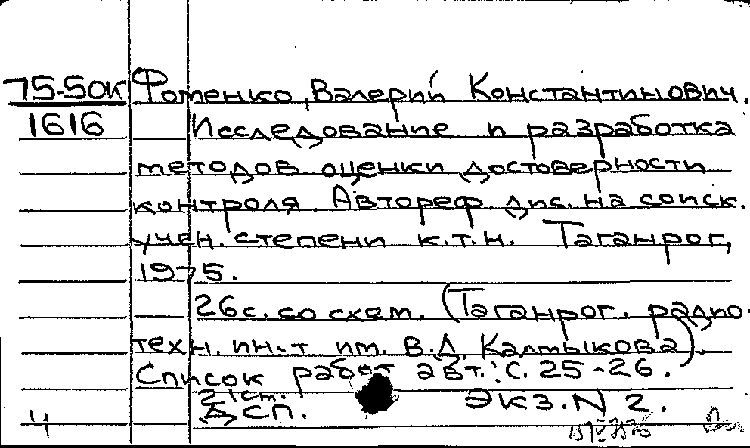 75-50к Фоменко, Валерий Константинович.
1616 Исследование и разработка
методов оценки достоверности
контроля. Автореф. дис. на соиск.
учен. степени к.т.н. Таганрог,
1975.
26 с. со схем. (Таганрог. радио-
техн. ин-т им. В.Д. Калмыкова).
Список работ авт.: с. 25-26.
ДСП. Экз. N 2.
4